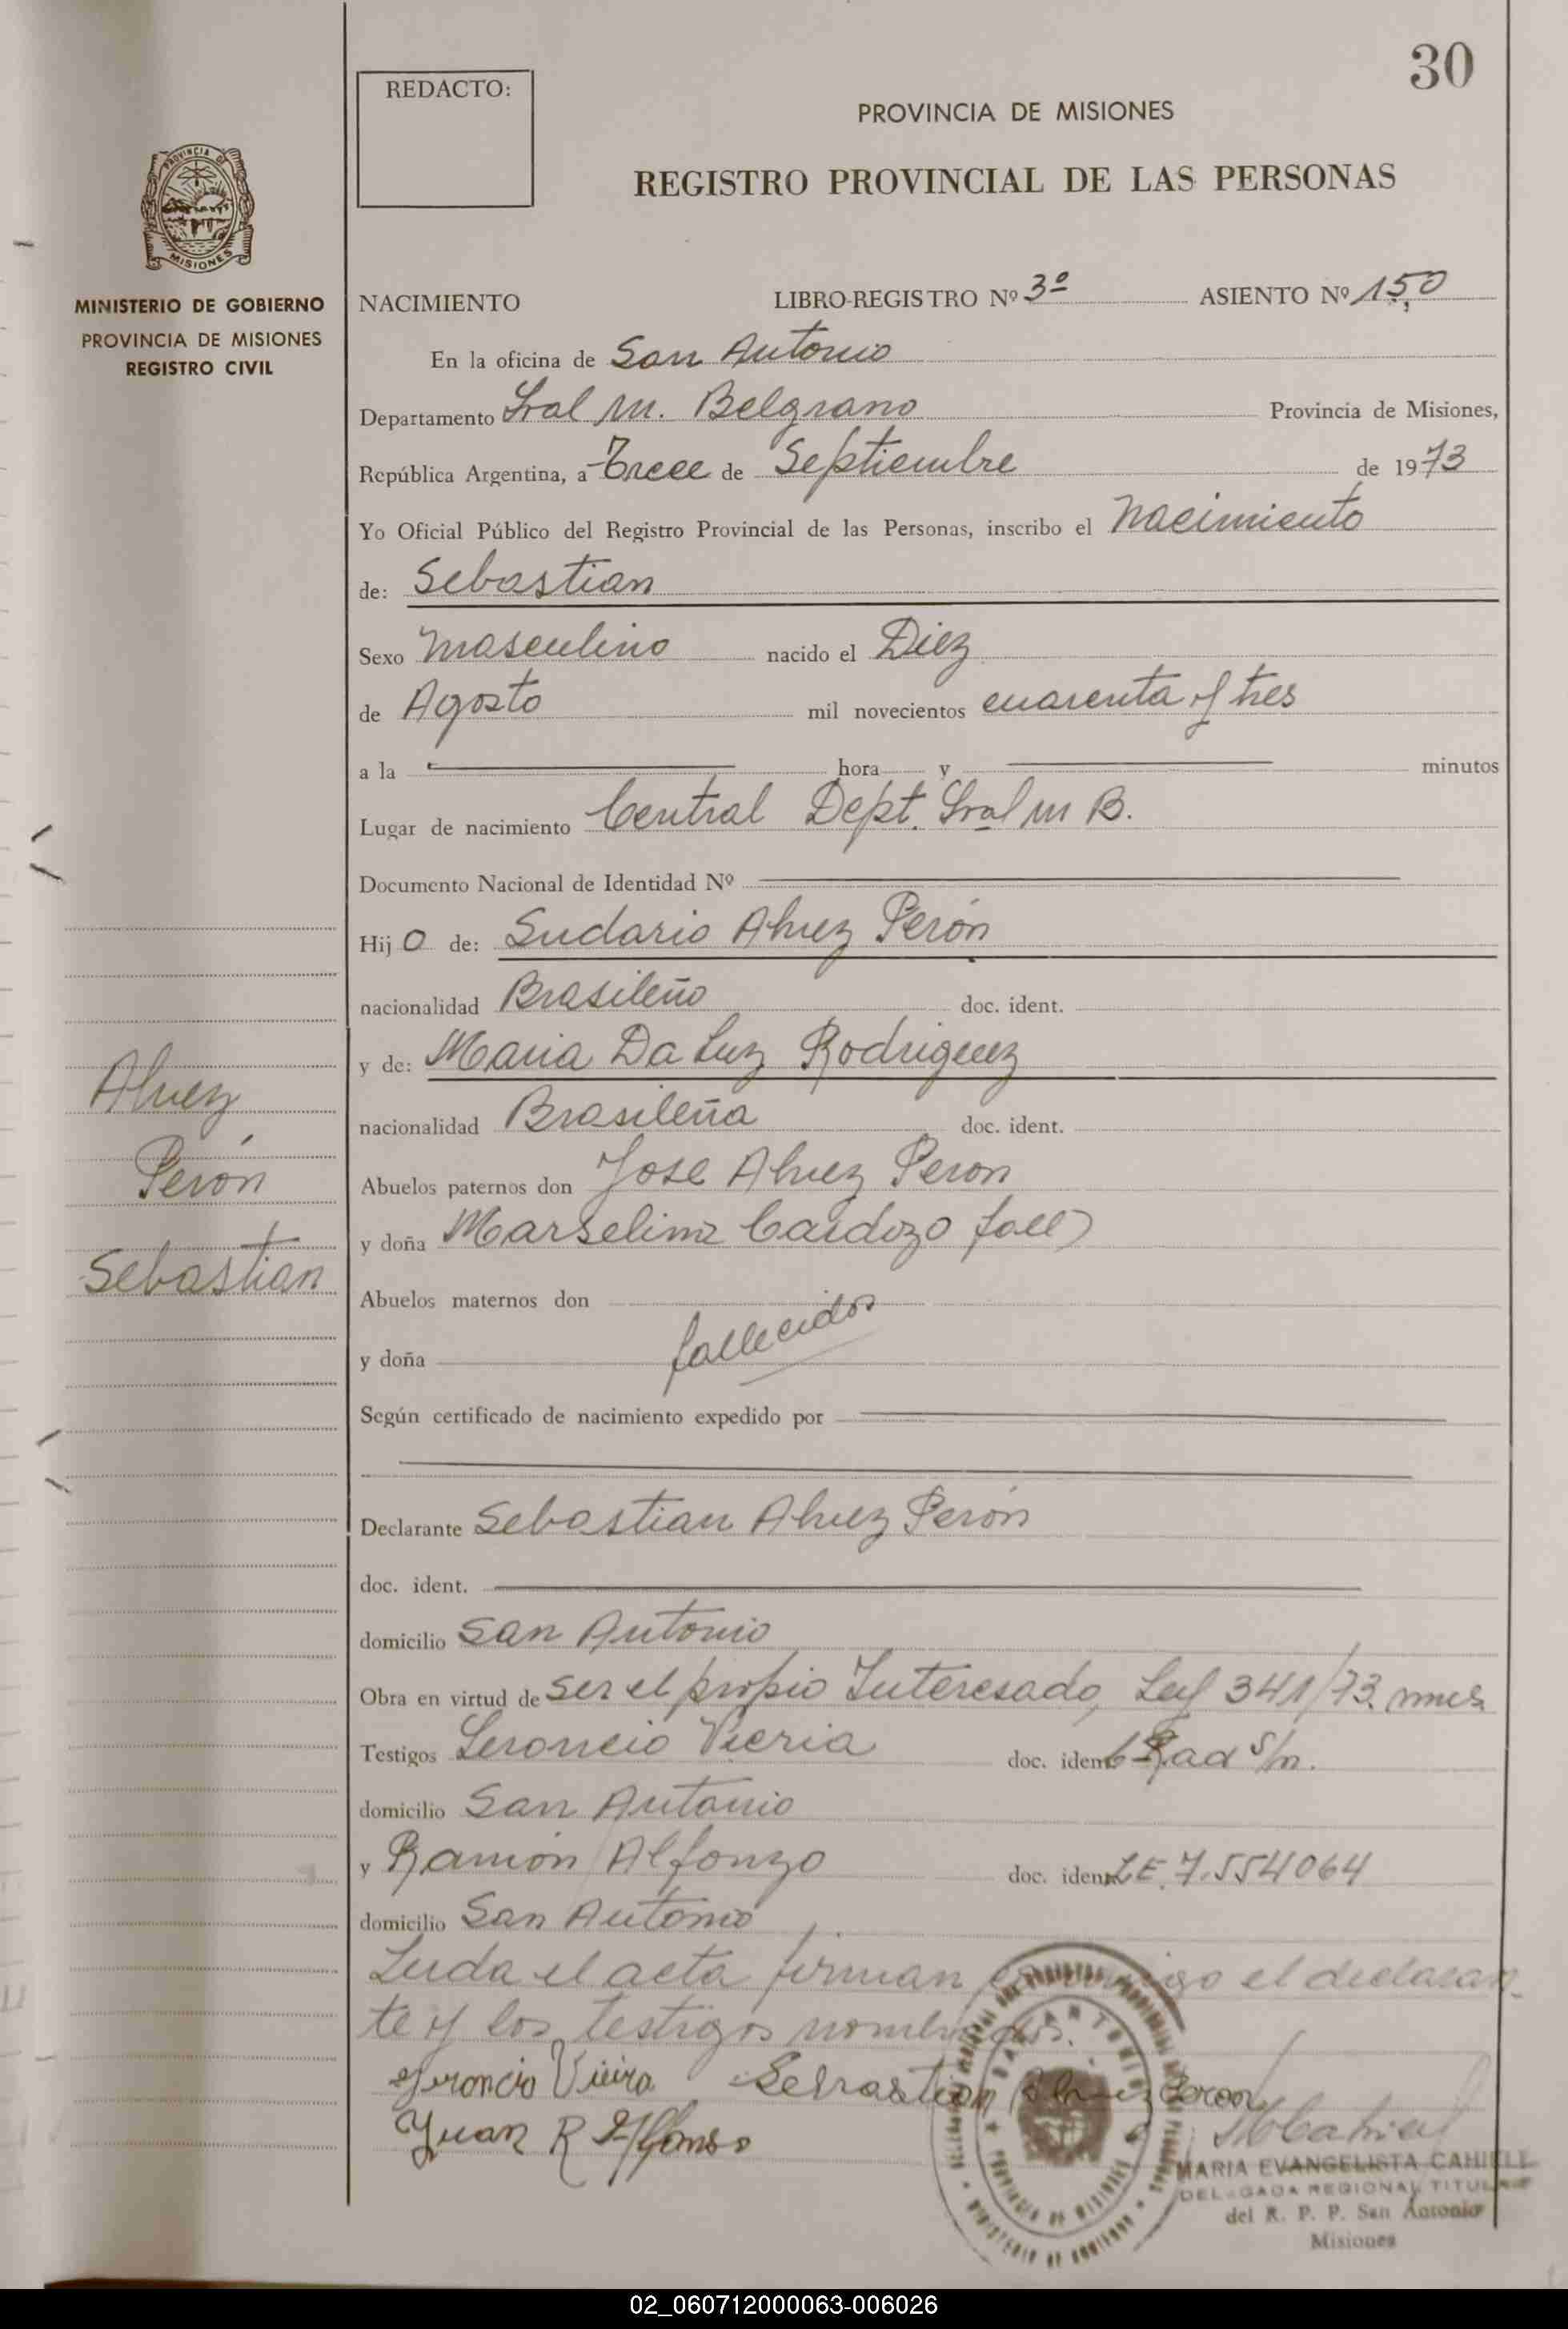 30
REDACTO:
PROVINCIA DE MISIONES
REGISTRO PROVINCIAL DE LAS PERSONAS
PROVINCIA D
MISIONES
MINISTERIO DE GOBIERNO
PROVINCIA DE MISIONES
REGISTRO CIVIL
NACIMIENTO LIBRO-REGISTRO Nº 3º ASIENTO Nº 150
En la oficina de San Antonio
Departamento Gral M. Belgrano Provincia de Misiones,
República Argentina, a Trece de Septiembre de 1973
Yo Oficial Público del Registro Provincial de las Personas, inscribo el Nacimiento
de: Sebastian
Sexo Masculino nacido el Diez
de Agosto mil novecientos cuarenta y tres
a la hora y minutos
Lugar de nacimiento Central Dept. Gral M B.
Documento Nacional de Identidad Nº
Hijo de: Sudario Alvez Perón
nacionalidad Brasileño doc. ident.
y de: Maria Da Luz Rodriguez
nacionalidad Brasileña doc. ident.
Abuelos paternos don Jose Alvez Peron
y doña Marselina Cardozo fall)
Abuelos maternos don
y doña fallecidos
Según certificado de nacimiento expedido por
Alvez
Perón
Sebastian
Declarante Sebastian Alvez Perón
doc. ident.
domicilio San Antonio
Obra en virtud de ser el propio Interesado, Ley 341/73.
Testigos Geroncio Vieria doc. ident. C Rad s/n.
domicilio San Antonio
y Ramón Alfonzo doc. ident. L E. 7.554064
domicilio San Antonio
Leida el acta firman conmigo el declaran-
te y los testigos nombrados.
Geroncio Vieira Sebrastian Alvez Peron
Juan R Alfonso
MARIA EVANGELISTA CAHIELL
DELEGADA REGIONAL TITULAR
del R. P. P. San Antonio
Misiones
02_060712000063-006026